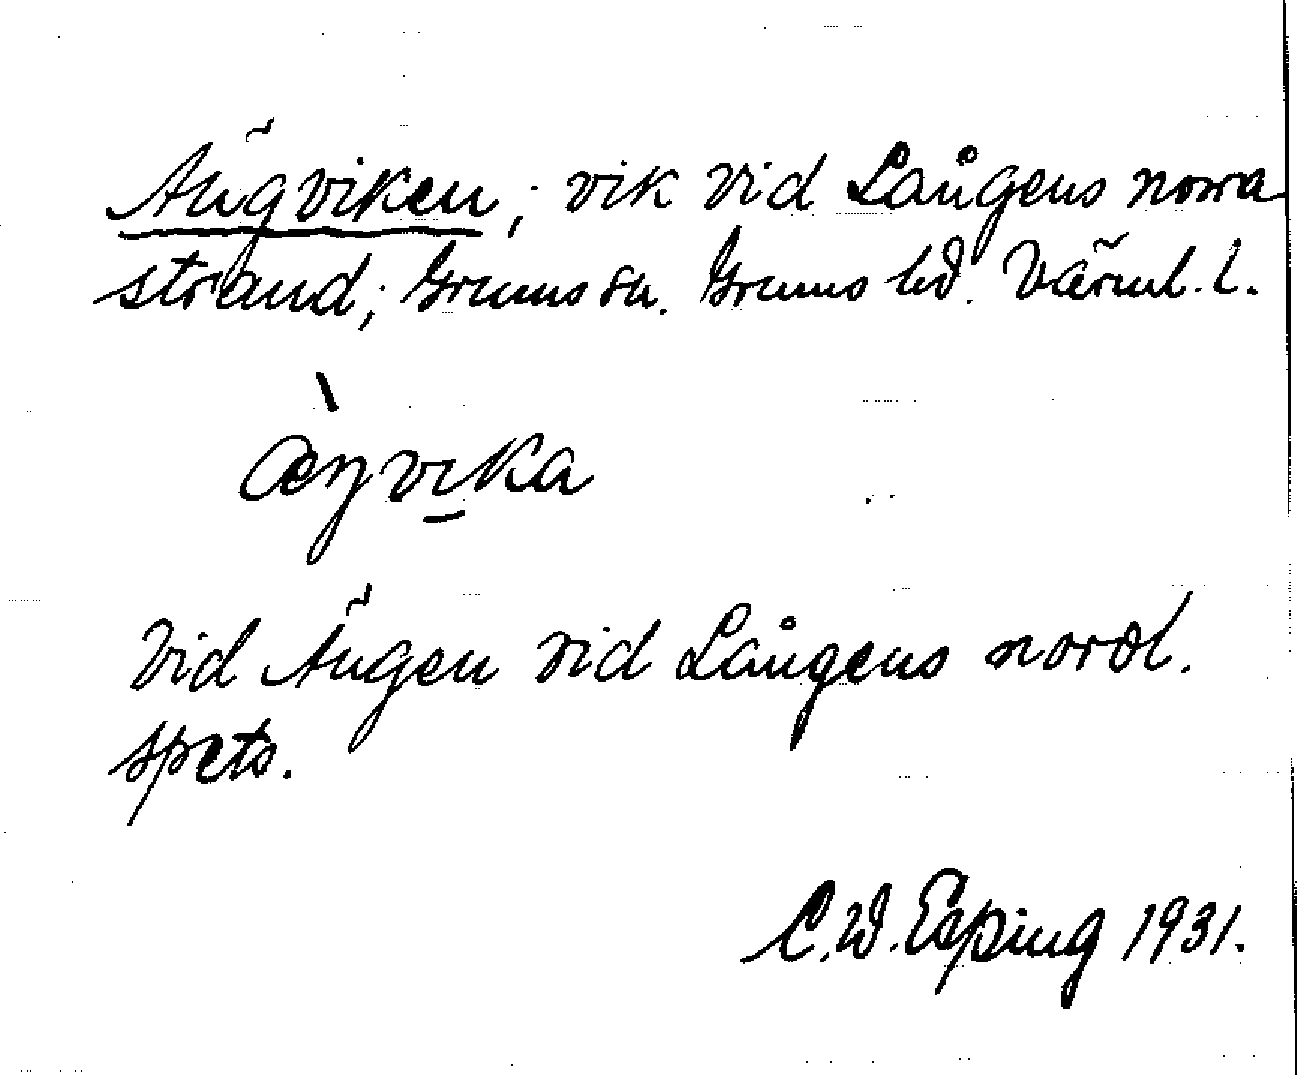 Ängviken; vik vid Långens norra
strand; Grums sn. Grums hd. Värml. l.
æ̀ŋvi̠ka
Vid Ängen vid Långens nordl.
spets.
C.W. Epping 1931.